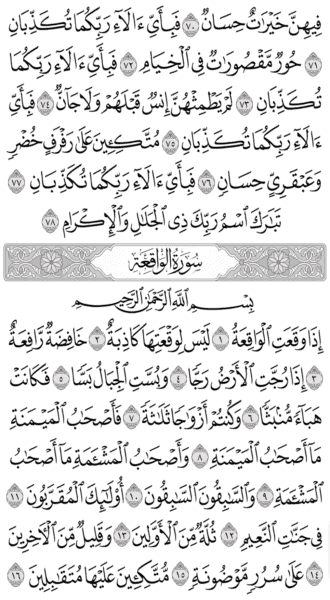 فِيهِنَّ خَيْرَٰتٌ حِسَانٌ ٧٠ فَبِأَيِّ ءَالَآءِ رَبِّكُمَا تُكَذِّبَانِ
٧١ حُورٌ مَّقْصُورَٰتٌ فِي ٱلْخِيَامِ ٧٢ فَبِأَيِّ ءَالَآءِ رَبِّكُمَا
تُكَذِّبَانِ ٧٣ لَمْ يَطْمِثْهُنَّ إِنسٌ قَبْلَهُمْ وَلَا جَآنٌّ ٧٤ فَبِأَيِّ
ءَالَآءِ رَبِّكُمَا تُكَذِّبَانِ ٧٥ مُتَّكِـِٔينَ عَلَىٰ رَفْرَفٍ خُضْرٍ
وَعَبْقَرِيٍّ حِسَانٍ ٧٦ فَبِأَيِّ ءَالَآءِ رَبِّكُمَا تُكَذِّبَانِ ٧٧
تَبَٰرَكَ ٱسْمُ رَبِّكَ ذِي ٱلْجَلَٰلِ وَٱلْإِكْرَامِ ٧٨
سُورَةُ الوَاقِعَة
بِسْمِ ٱللَّهِ ٱلرَّحْمَٰنِ ٱلرَّحِيمِ
إِذَا وَقَعَتِ ٱلْوَاقِعَةُ ١ لَيْسَ لِوَقْعَتِهَا كَاذِبَةٌ ٢ خَافِضَةٌ رَّافِعَةٌ
٣ إِذَا رُجَّتِ ٱلْأَرْضُ رَجًّا ٤ وَبُسَّتِ ٱلْجِبَالُ بَسًّا ٥ فَكَانَتْ
هَبَآءً مُّنۢبَثًّا ٦ وَكُنتُمْ أَزْوَٰجًا ثَلَٰثَةً ٧ فَأَصْحَٰبُ ٱلْمَيْمَنَةِ
مَآ أَصْحَٰبُ ٱلْمَيْمَنَةِ ٨ وَأَصْحَٰبُ ٱلْمَشْـَٔمَةِ مَآ أَصْحَٰبُ
ٱلْمَشْـَٔمَةِ ٩ وَٱلسَّٰبِقُونَ ٱلسَّٰبِقُونَ ١٠ أُو۟لَٰٓئِكَ ٱلْمُقَرَّبُونَ ١١
فِي جَنَّٰتِ ٱلنَّعِيمِ ١٢ ثُلَّةٌ مِّنَ ٱلْأَوَّلِينَ ١٣ وَقَلِيلٌ مِّنَ ٱلْءَاخِرِينَ
١٤ عَلَىٰ سُرُرٍ مَّوْضُونَةٍ ١٥ مُّتَّكِـِٔينَ عَلَيْهَا مُتَقَٰبِلِينَ ١٦